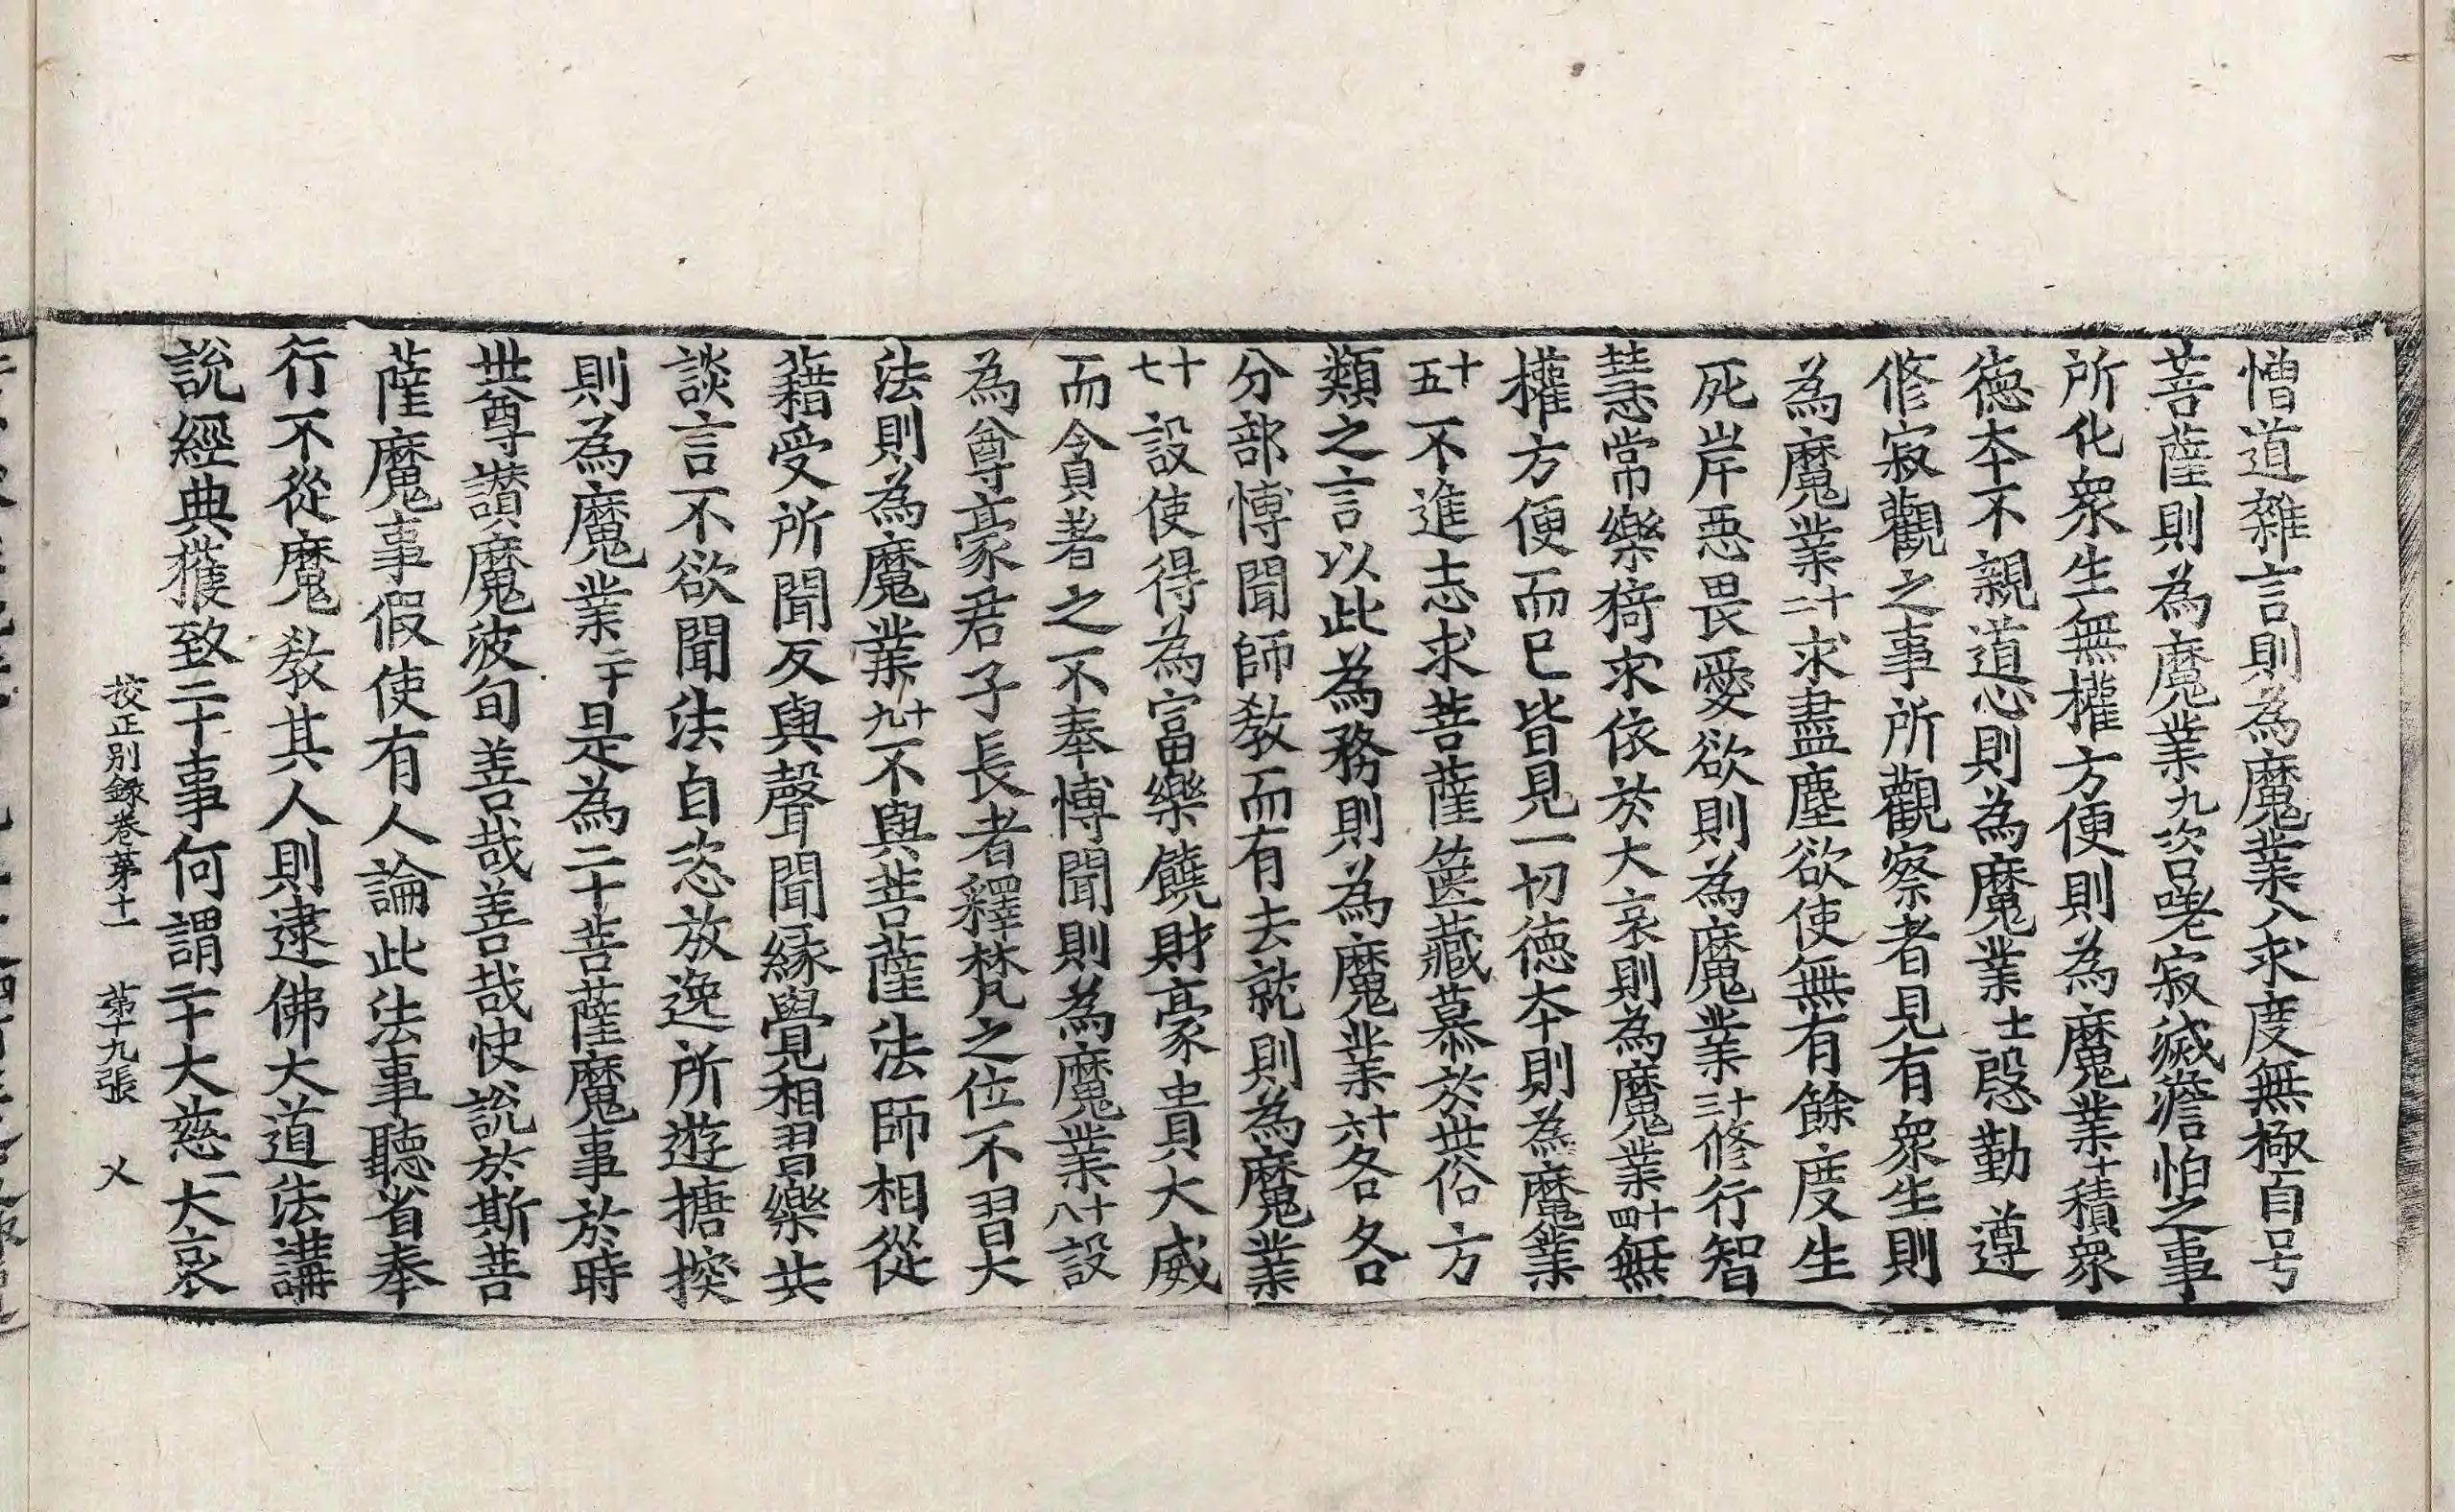 憎道雜言則為魔業八求度無極自号
菩薩則為魔業九咨嗟寂滅澹怕之事
所化衆生無權方便則為魔業十積衆
德夲不親道心則為魔業十一慇勤遵
修寂觀之事所觀察者見有衆生則
為魔業十二求盡塵欲使無有餘度生
死岸惡畏愛欲則為魔業十三修行智
慧常樂猗求依於大哀則為魔業十四無
權方便而已皆見一切德夲則為魔業
十五不進志求菩薩篋藏慕於世俗方
類之言以此為務則為魔業十六各各
分部博聞師教而有去就則為魔業
十七設使得為富樂饒財豪貴大威
而貪著之不奉博聞則為魔業十八設
為尊豪君子長者釋梵之位不習大
法則為魔業十九不與菩薩法師相從
籍受所聞反與聲聞緣覺相習樂共
談言不欲聞法自恣放逸所遊搪揬
則為魔業二十是為二十菩薩魔事於時
世尊讃魔波旬善哉善哉快說於斯菩
薩魔事假使有人論此法事聽省奉
行不從魔教其人則逮佛大道法講
說經典獲致二十事何謂二十大慈一大哀
挍正別錄卷苐十一 苐十九張 乂